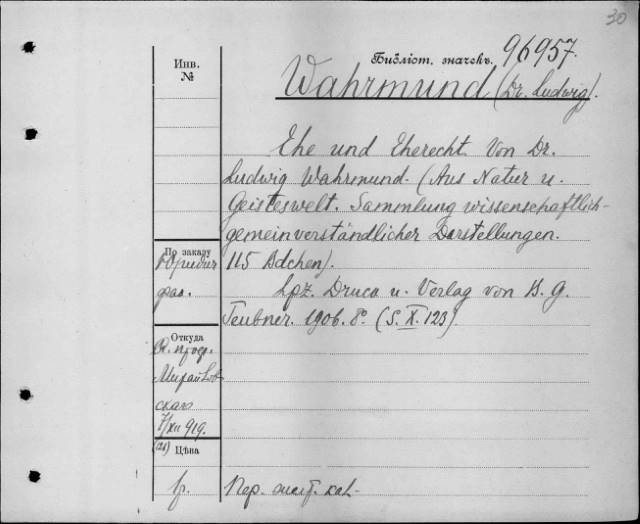 30
Библіот. значекъ. 96957.
Инв.
№
Wahrmund (Dr. Ludwig).
Ehe und Eherecht. Von Dr.
Ludwig Wahrmund. (Aus Natur u.
Geisteswelt. Sammlung wissenschaftlich-
gemeinverständlicher Darstellungen.
115 Bdchen).
Lpz. Druck u. Verlag von B. G.
Teubner. 1906. 8º. (S. X. 123).
По заказу
Юридич
фак.
Откуда
проф.
Михайлов
скаго
7/XII 919.
Цѣна
кат.